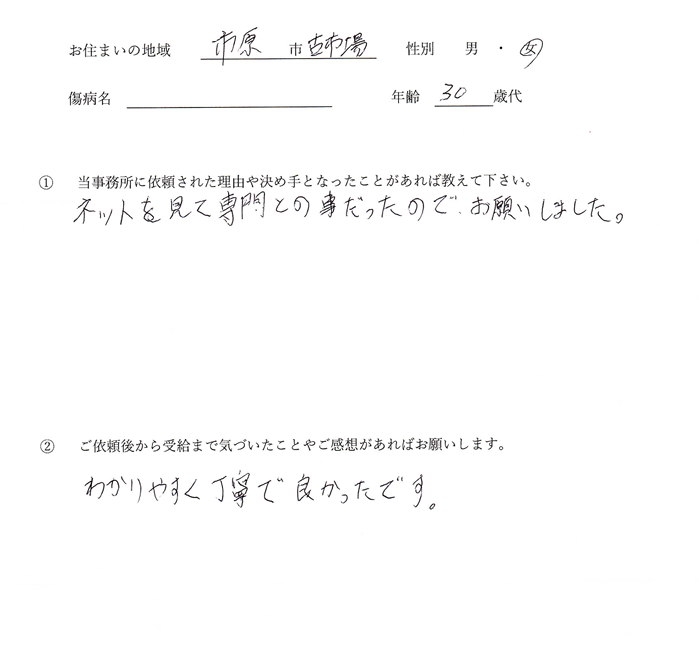 お住まいの地域 市原 市 古市場 性別 男 ・ 女
傷病名 年齢 30 歳代
① 当事務所に依頼された理由や決め手となったことがあれば教えて下さい。
ネットを見て専門との事だったので、お願いしました。
② ご依頼後から受給まで気づいたことやご感想があればお願いします。
わかりやすく丁寧で良かったです。